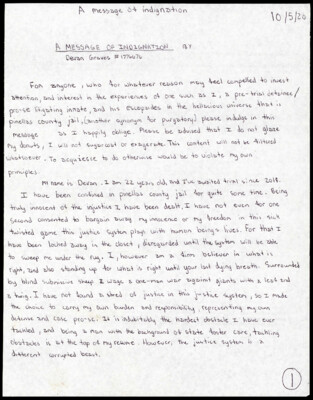 A message of indignation
10/5/20
A MESSAGE OF INDIGNATION BY
Devan Graves #1776076
For anyone, who for whatever reason may feel compelled to invest
attention, and interest in the experiences of one such as I, a pre-trial detainee/
pro-se litigating inmate, and his escapades in the bellicious universe that is
pinellas county jail, (another synonym for purgatory) please indulge in this
message as I happily oblige. Please be advised that I do not glaze
my donuts, I will not sugarcoat or exagerate. This content will not be filtered
whatsoever. To acquiesce to do otherwise would be to violate my own
principles.
My name is Devan. I am 22 years old and I've awaited trial since 2018.
I have been confined in pinellas county jail for quite some time. Being
truly innocent of the injustice I have been dealt, I have not even for one
second consented to bargain away my innocence or my freedom in this sick
twisted game this justice system plays with human being's lives. For that I
have been locked away in the closet, disregarded until the system will be able
to sweep me under the rug. I, however am a firm believer in what is
right, and also standing up for what is right until your last dying breath. Surrounded
by blind submissive sheep I wage a one-man war against giants with a vest and
a thing. I have not found a shred of justice in this justice system, so I made
the choice to carry my own burden and responsibility, representing my own
defense and case pro-se. It is indubitably the hardest obstacle I have ever
tackled, and being a man with the background of state foster care, tackling
obstacles is at the top of my resume. However, the justice system is a
different corrupted beast.
1